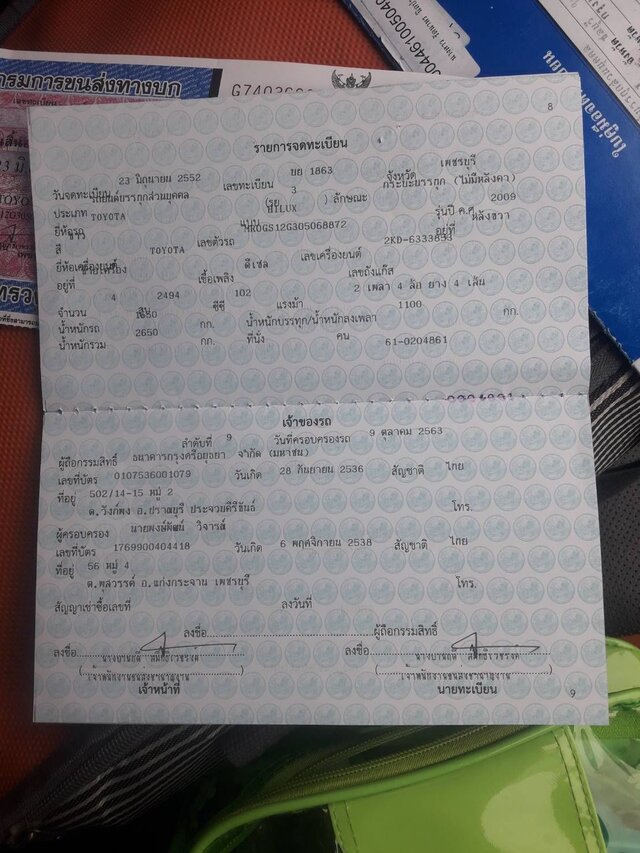 กรมการขนส่งทางบก
8
รายการจดทะเบียน
วันจดทะเบียน 23 มิถุนายน 2552 เลขทะเบียน บย 1863 จังหวัด เพชรบุรี
ประเภท รถยนต์บรรทุกส่วนบุคคล (รย 3 ) ลักษณะ กระบะบรรทุก (ไม่มีหลังคา)
ยี่ห้อรถ TOYOTA แบบ HILUX รุ่นปี ค.ศ. 2009
สี เลขตัวรถ MR0GS12G305068872 อยู่ที่ หลังขวา
ยี่ห้อเครื่องยนต์ TOYOTA เลขเครื่องยนต์ 2KD-6333833
อยู่ที่ เชื้อเพลิง ดีเซล เลขถังแก๊ส
จำนวน 4 สูบ 2494 ซีซี 102 แรงม้า 2 เพลา 4 ล้อ ยาง 4 เส้น
น้ำหนักรถ กก. น้ำหนักบรรทุก/น้ำหนักลงเพลา 1100 กก.
น้ำหนักรวม 2650 กก. ที่นั่ง คน 61-0204861
เจ้าของรถ
ลำดับที่ 9 วันที่ครอบครองรถ 9 ตุลาคม 2563
ผู้ถือกรรมสิทธิ์ ธนาคารกรุงศรีอยุธยา จำกัด (มหาชน)
เลขที่บัตร 0107536001079 วันเกิด 28 กันยายน 2536 สัญชาติ ไทย
ที่อยู่ 502/14-15 หมู่ 2
ต.วังก์พง อ.ปราณบุรี ประจวบคีรีขันธ์ โทร.
ผู้ครอบครอง นายพงษ์พัฒน์ วิจารณ์
เลขที่บัตร 1769900404418 วันเกิด 6 พฤศจิกายน 2538 สัญชาติ ไทย
ที่อยู่ 56 หมู่ 4
ต.พุสวรรค์ อ.แก่งกระจาน เพชรบุรี โทร.
สัญญาเช่าซื้อเลขที่ ลงวันที่
ลงชื่อ ผู้ถือกรรมสิทธิ์
ลงชื่อ ลงชื่อ
เจ้าพนักงานขนส่งชำนาญงาน เจ้าพนักงานขนส่งชำนาญงาน
เจ้าหน้าที่ นายทะเบียน
9